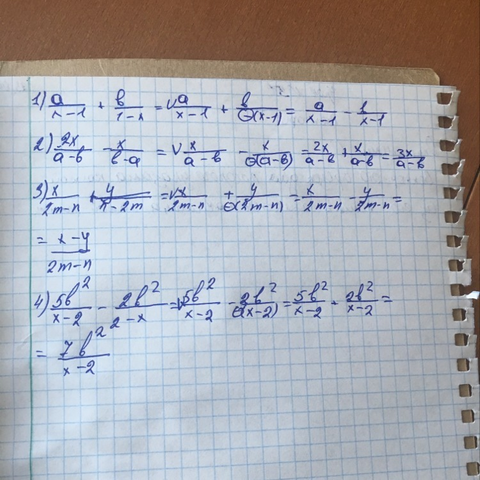 1) a/x-1 + b/1-x = √a/x-1 + b/-(x-1) = a/x-1 - b/x-1
2) 2x/a-b - x/b-a = √x/a-b - x/-(a-b) = 2x/a-b + x/a-b = 3x/a-b
3) x/2m-n + y/n-2m = √x/2m-n + y/-(2m-n) = x/2m-n - y/2m-n =
= x-y/2m-n
4) 5b²/x-2 - 2b²/2-x = √5b²/x-2 - 2b²/-(x-2) = 5b²/x-2 + 2b²/x-2 =
= 7b²/x-2